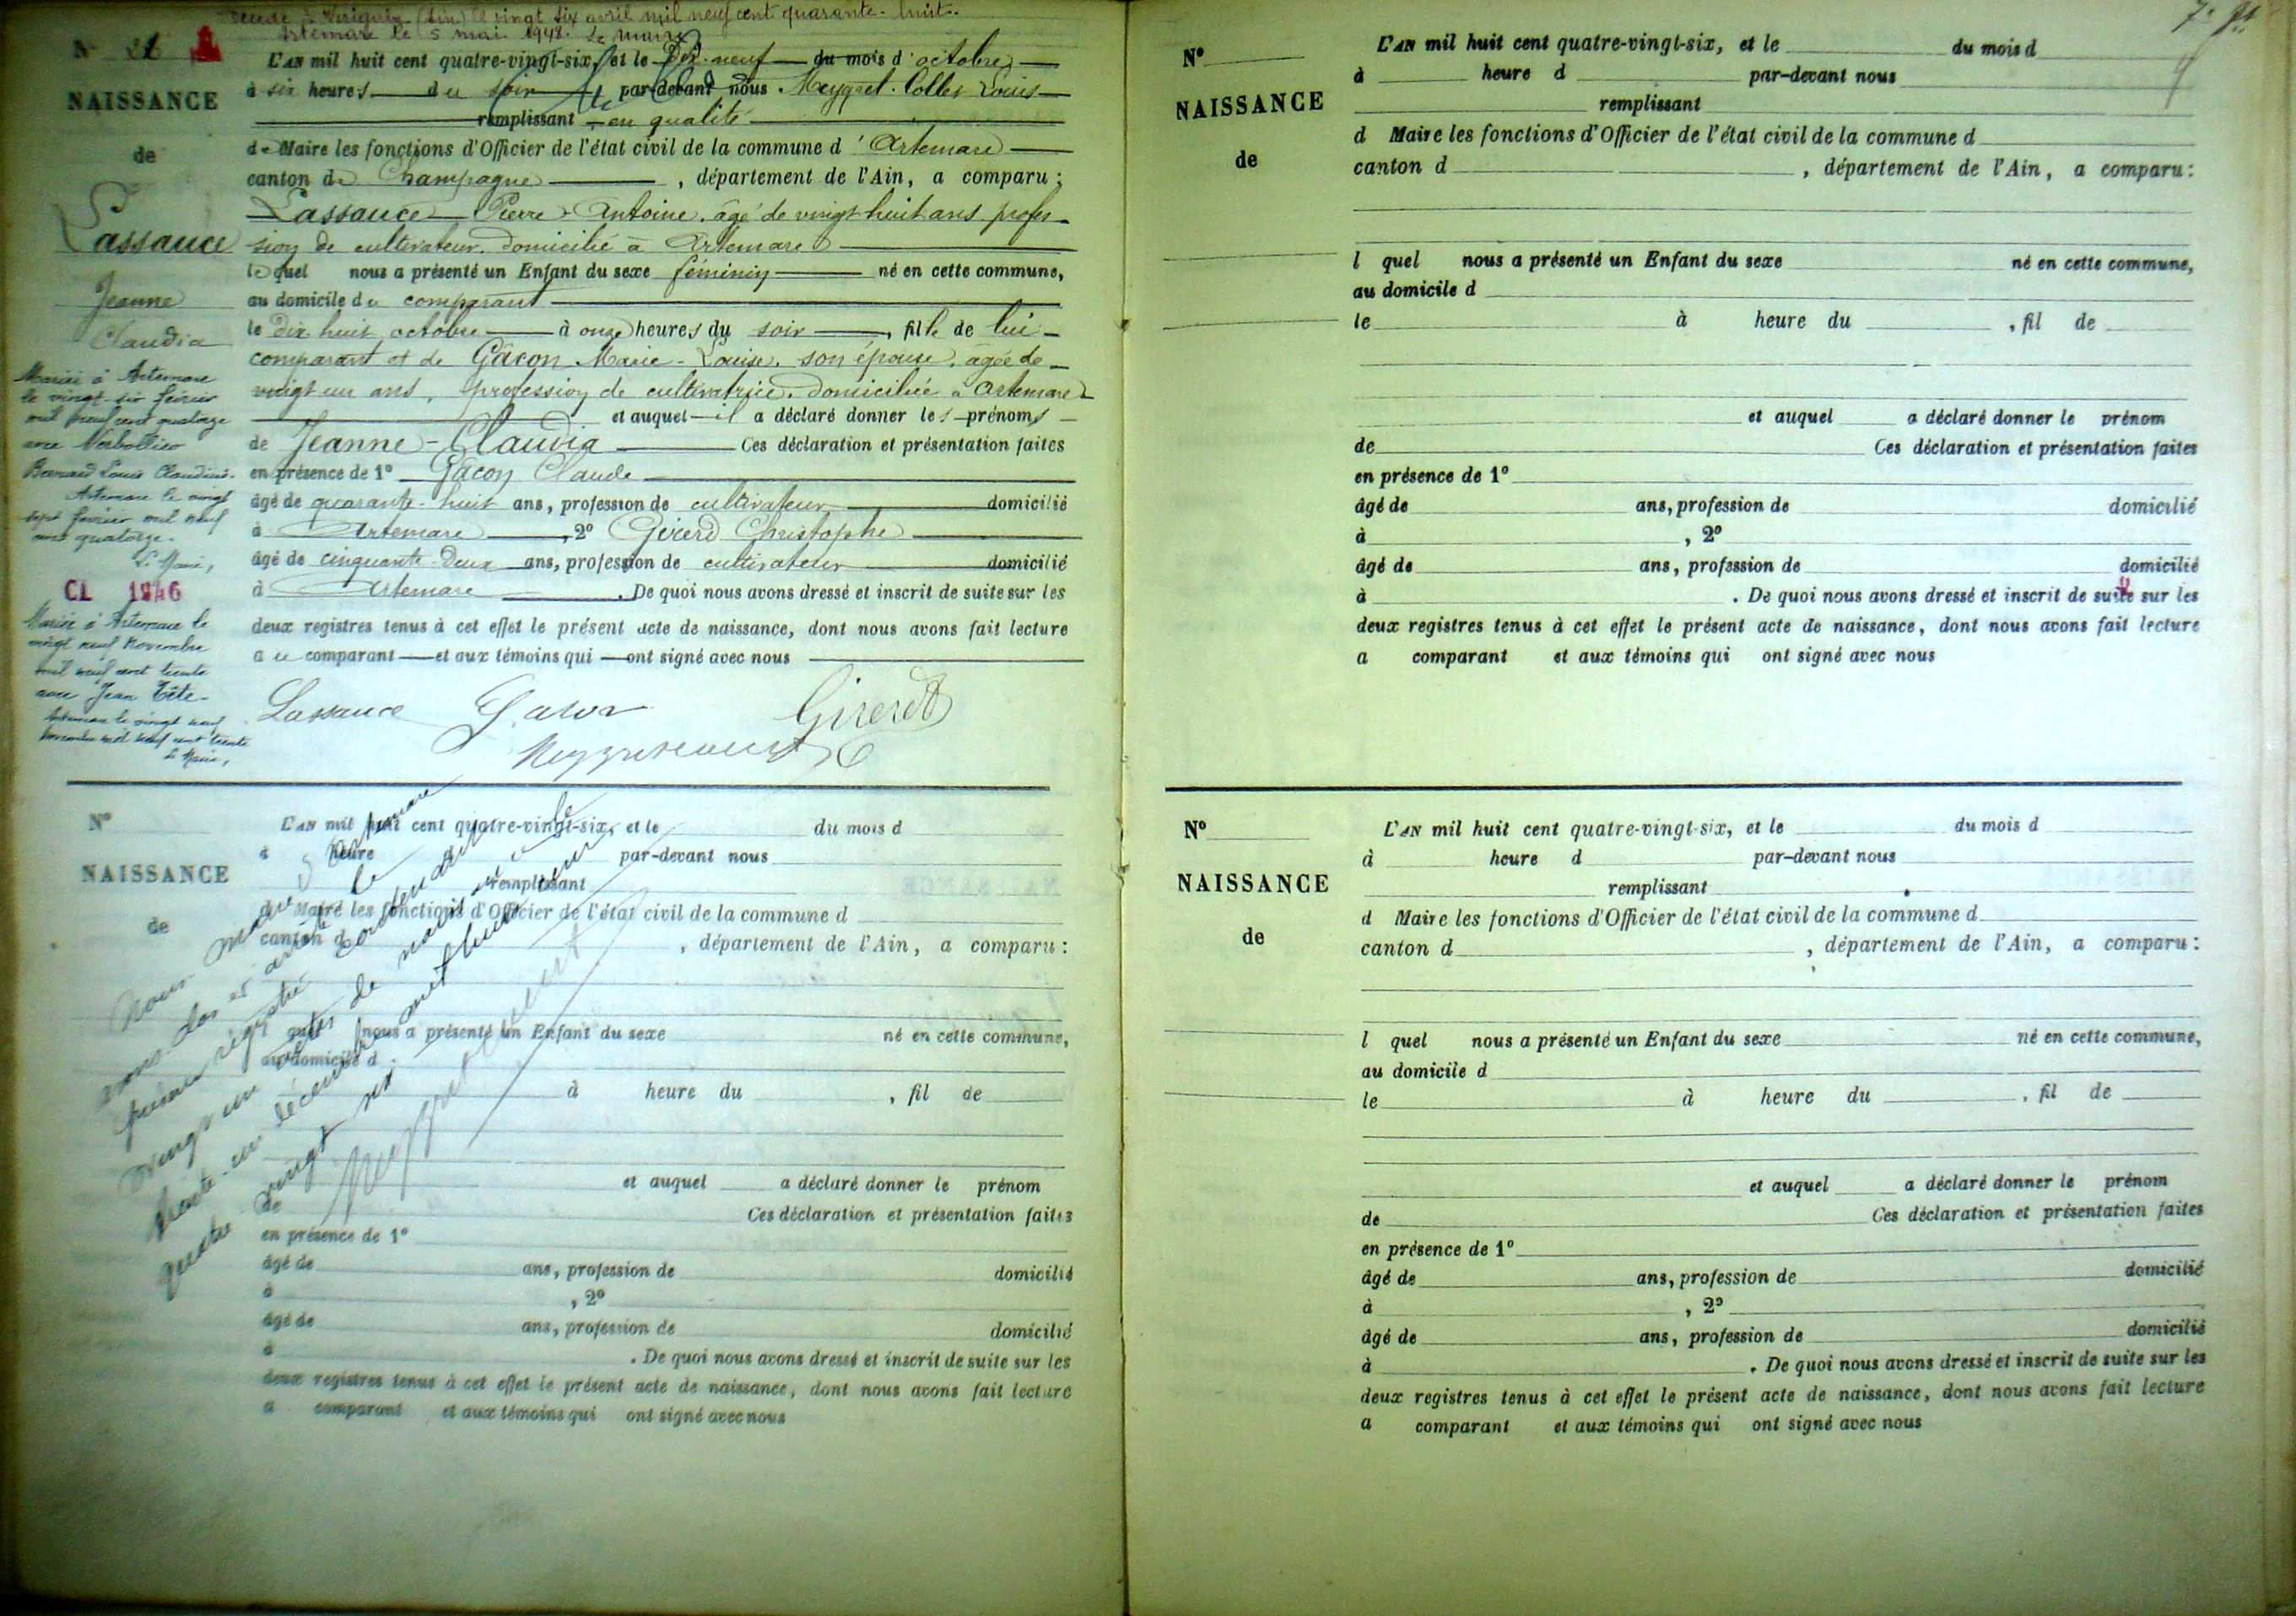 Virignin (Ain) le vingt six avril mil neuf cent quarante-huit.
Artemare le 5 mai 1948. Le maire
N° 21
NAISSANCE
de
Lassance
Jeanne
Claudia
Mariée à Artemare
le vingt six février
mil neuf cent quatorze
avec
Bernard Louis Claudius.
Artemare le vingt
sept février mil neuf
cent quatorze.
Le Maire,
CL 1946
Mariée à Artemare le
vingt neuf Novembre
mil neuf cent trente
avec Jean Tête.
Artemare le vingt neuf
novembre mil neuf cent trente
Le Maire,
L'AN mil huit cent quatre-vingt-six, et le Dix-neuf du mois d'octobre
à six heures du soir par-devant nous Meygret-Collet Louis
remplissant en qualité
de Maire les fonctions d'Officier de l'état civil de la commune d'Artemare
canton de Champagne, département de l'Ain, a comparu :
Lassance Pierre Antoine, âgé de vingt huit ans, profes-
sion de cultivateur, domicilié à Artemare
lequel nous a présenté un Enfant du sexe féminin né en cette commune,
au domicile du comparant
le Dix huit octobre à onze heures du soir, fille de lui
comparant et de Gacon Marie-Louise, son épouse, âgée de
vingt un ans, profession de cultivatrice, domiciliée à Artemare
et auquel il a déclaré donner les prénoms
de Jeanne-Claudia Ces déclaration et présentation faites
en présence de 1° Gacon Claude
âgé de quarante-huit ans, profession de cultivateur domicilié
à Artemare, 2° Girerd Christophe
âgé de cinquante-deux ans, profession de cultivateur domicilié
à Artemare. De quoi nous avons dressé et inscrit de suite sur les
deux registres tenus à cet effet le présent acte de naissance, dont nous avons fait lecture
au comparant et aux témoins qui ont signé avec nous
Lassance Gacon Girerd
N°
NAISSANCE
de
L'AN mil huit cent quatre-vingt-six, et le du mois d
à heure d par-devant nous
remplissant
d Maire les fonctions d'Officier de l'état civil de la commune d
canton d , département de l'Ain, a comparu :
l quel nous a présenté un Enfant du sexe né en cette commune,
au domicile d
à heure du , fil de
et auquel a déclaré donner le prénom
de Ces déclaration et présentation faites
en présence de 1°
âgé de ans, profession de domicilié
à , 2°
âgé de ans, profession de domicilié
à . De quoi nous avons dressé et inscrit de suite sur les
deux registres tenus à cet effet le présent acte de naissance, dont nous avons fait lecture
a comparant et aux témoins qui ont signé avec nous
Nous maire d'Artemare
avons clos et arrêté le
présent registre contenant
vingt un actes de naissance le
trente-un décembre mil huit cent
quatre vingt six
N°
NAISSANCE
de
L'AN mil huit cent quatre-vingt-six, et le du mois d
à heure d par-devant nous
remplissant
d Maire les fonctions d'Officier de l'état civil de la commune d
canton d , département de l'Ain, a comparu :
l quel nous a présenté un Enfant du sexe né en cette commune,
au domicile d
le à heure du , fil de
et auquel a déclaré donner le prénom
de Ces déclaration et présentation faites
en présence de 1°
âgé de ans, profession de domicilié
à , 2°
âgé de ans, profession de domicilié
à . De quoi nous avons dressé et inscrit de suite sur les
deux registres tenus à cet effet le présent acte de naissance, dont nous avons fait lecture
a comparant et aux témoins qui ont signé avec nous
N°
NAISSANCE
de
L'AN mil huit cent quatre-vingt-six, et le du mois d
à heure d par-devant nous
remplissant
d Maire les fonctions d'Officier de l'état civil de la commune d
canton d , département de l'Ain, a comparu :
l quel nous a présenté un Enfant du sexe né en cette commune,
au domicile d
le à heure du , fil de
et auquel a déclaré donner le prénom
de Ces déclaration et présentation faites
en présence de 1°
âgé de ans, profession de domicilié
à , 2°
âgé de ans, profession de domicilié
à . De quoi nous avons dressé et inscrit de suite sur les
deux registres tenus à cet effet le présent acte de naissance, dont nous avons fait lecture
a comparant et aux témoins qui ont signé avec nous